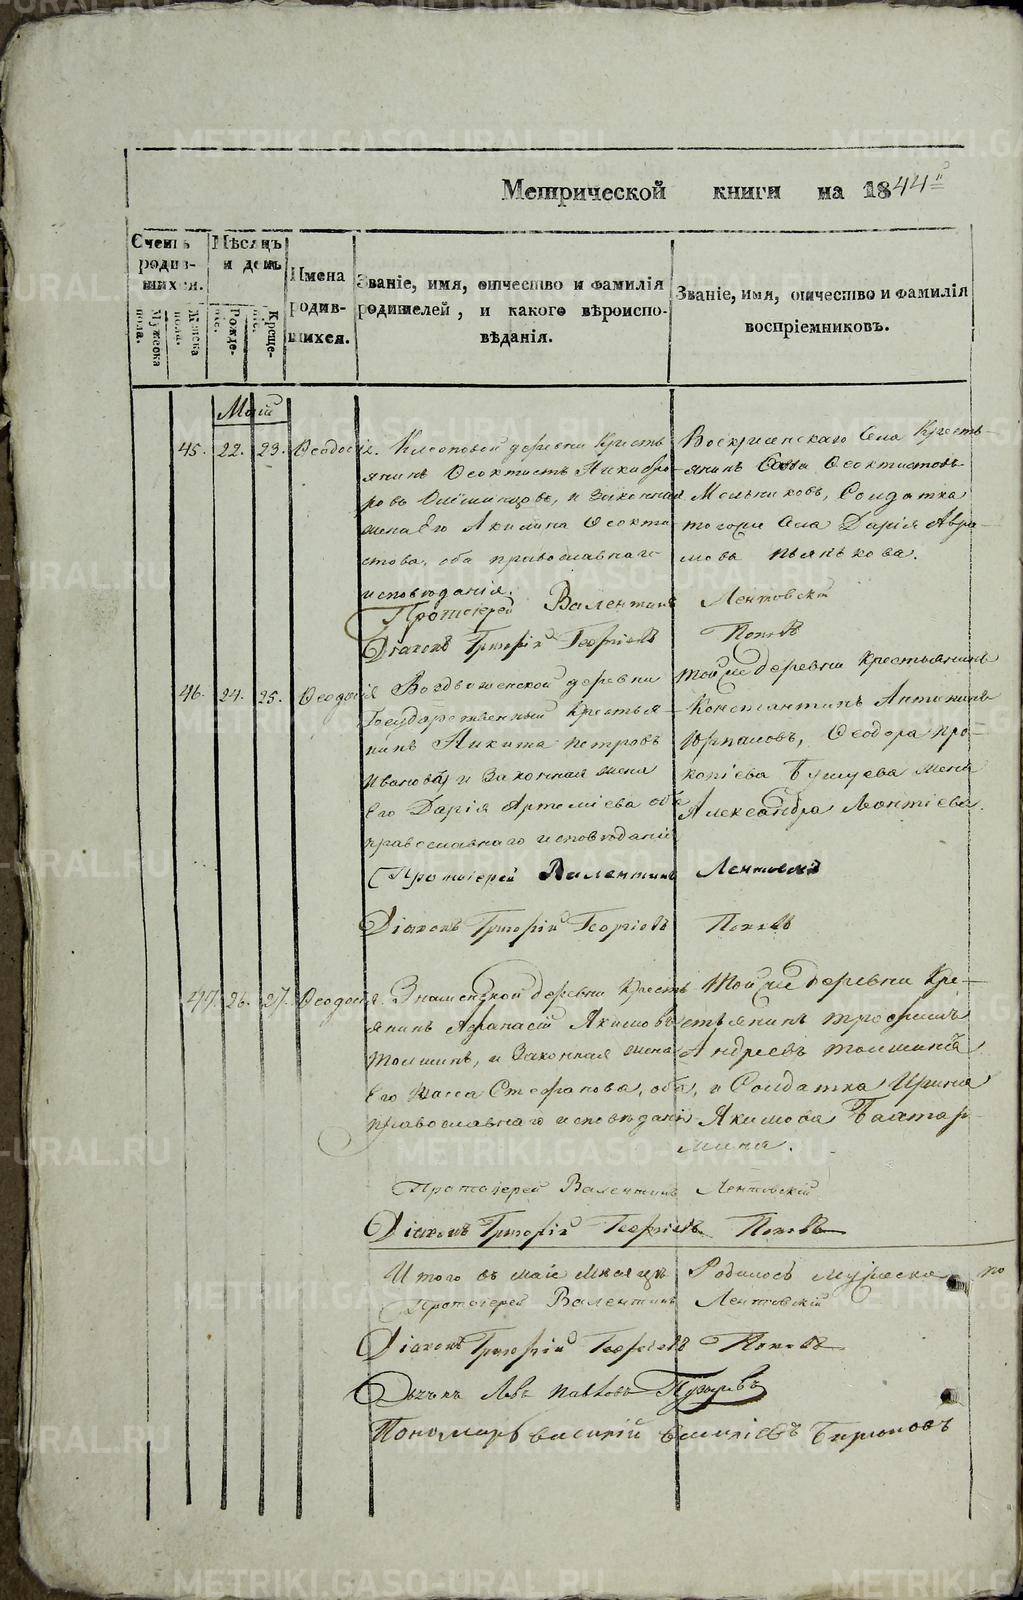 Метрической книги на 1844й
Счетъ родив-
шихся.
Мужеска
пола.
Женска
пола.
Мѣсяцъ
и день
Рожде-
нія.
Креще-
нія.
Имена
родив-
шихся.
Званіе, имя, отчество и фамилія
родителей, и какого вѣроиспо-
вѣданія.
Званіе, имя, отчество и фамилія
воспріемниковъ.
Маій
45. 22. 23. Ѳеодосія.
деревни Кресть
янинъ Ѳеоктистъ Никифо-
ровъ и законная
жена Его Акилина Ѳеокти
стова, оба православнаго
исповѣданія.
Воскрисенскаго Села Кресть-
янинъ Савва Ѳеоктистовъ
Мельниковъ, Солдатка
тогоже Села Дарія Авра-
мова Пьянькова.
Протоіерей Валентинъ Лентовскій
Діаконъ Григорій Георгіевъ Поповъ
46. 24. 25. Ѳеодосія
Воздвиженской деревни
Государственный Крестья-
нинъ Никита Петровъ
Ивановъ и Законная жена
Его Дарія Артеміева оба
православнаго исповѣданія
Той же деревни Крестьянинъ
Константинъ Антонинъ
Ѳеодора Про-
копіева жена
Александра Леонтіева.
Протоіерей Валентинъ Лентовскій
Діаконъ Григорій Георгіевъ Поповъ
47. 26. 27. Ѳеодосія.
Знаменской деревни Кресть
янинъ Афанасій Якимовъ
Толшинъ, и Законная жена
Его Васса Стефанова, оба
православнаго исповѣданія
Той же деревни Кре-
стьянинъ Трофимъ
Андреевъ Толшинъ
и Солдатка Ирина
Якимова
Протоіерей Валентинъ Лентовскій
Діаконъ Григорій Георгіевъ Поповъ
Итого въ маіе мѣсяцѣ Родилось мужеска по
Протоіерей Валентинъ Лентовскій
Діаконъ Григорій Георгіевъ Поповъ
Дьячекъ Левъ Павловъ Пузыревъ
Пономарь Василій Василіевъ Бирюковъ
METRIKI.GASO-URAL.RU